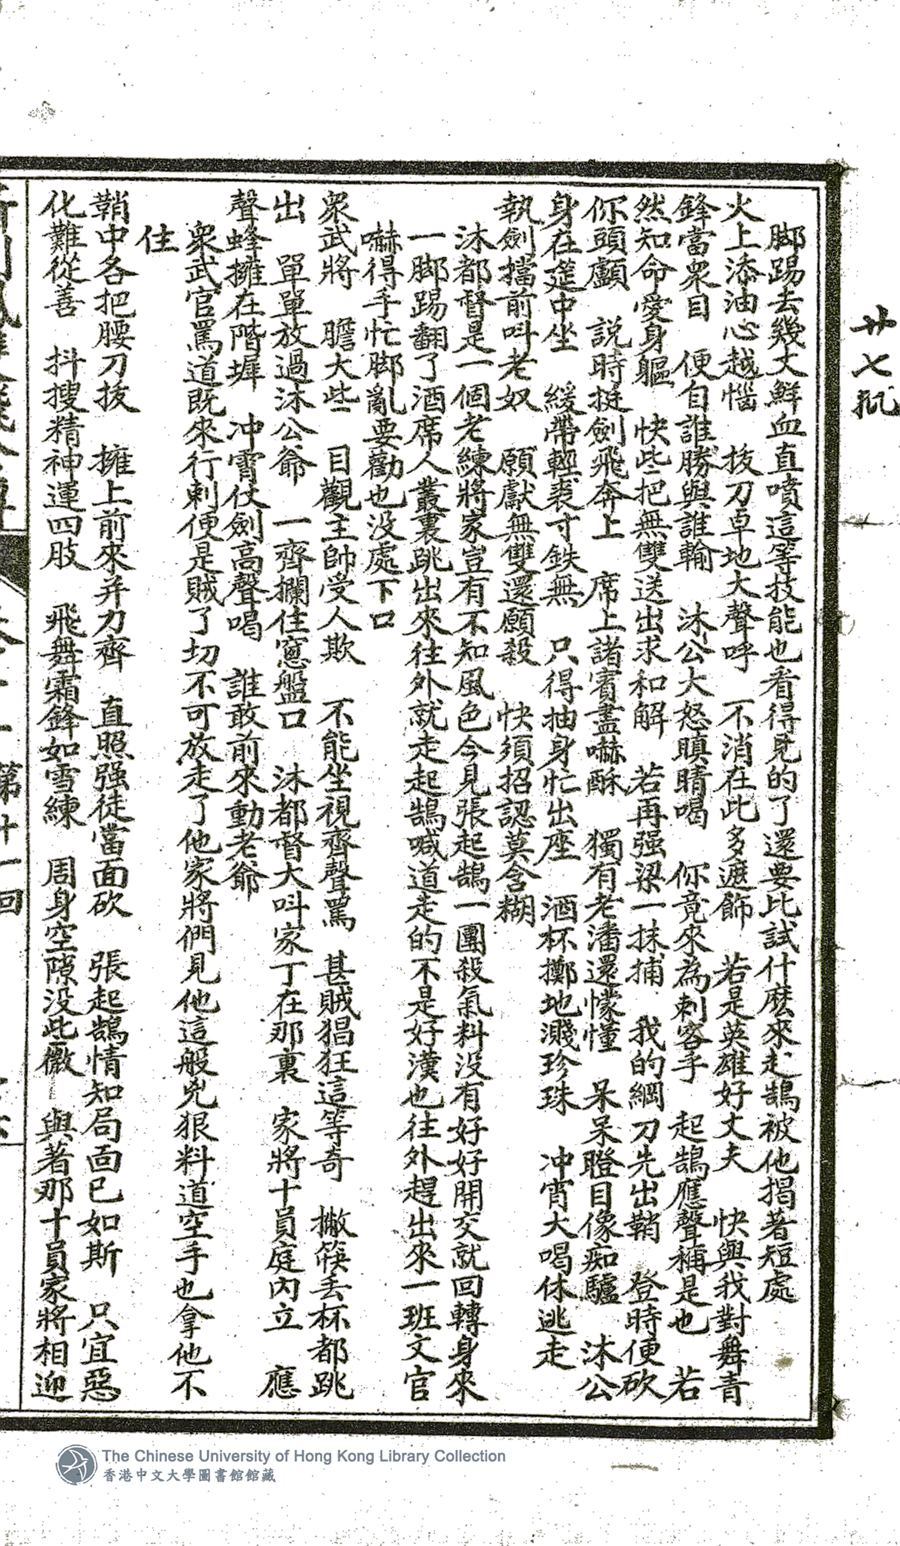 廿七㧗
脚踢去幾丈鮮血直噴這等技能也看得見的了還要比試什麽來起鵠被他揭著短處
火上添油心越惱　拔刀卓地大聲呼　不消在此多遮飾　若是英雄好丈夫　快與我對舞青
鋒當衆目　便自誰勝與誰輸　沐公大怒瞋睛喝　你竟來為刺客手　起鵠應聲稱是也　若
然知命愛身軀　快些把無雙送出求和解　若再强梁一抹捕　我的綱刀先出鞘　登時便砍
你頭顱　說時挺劍飛奔上　席上諸賓盡嚇酥　獨有老潘還懞懂　呆呆瞪目像痴驢　沐公
身在筵中坐　緩帶輕裘寸鉄無　只得抽身忙出座　酒杯擲地濺珍珠　冲宵大喝休逃走
執劍擋前呌老奴　願獻無雙還願殺　快須招認莫含糊
沐都督是一個老練將家豈有不知風色今見張起鵠一團殺氣料没有好好開交就回轉身來
一脚踢翻了酒席人叢裏跳出來往外就走起鵠喊道走的不是好漢也往外趕出來一班文官
嚇得手忙脚亂要勸也没處下口
衆武將　膽大些　目觀主帥受人欺　不能坐視齊聲罵　甚賊猖狂這等奇　撇筷丢杯都跳
出　單單放過沐公爺　一齊攔住窻盤口　沐都督大呌家丁在那裏　家將十員庭内立　應
聲蜂擁在階墀　冲霄仗劍高聲喝　誰敢前來動老爺
衆武官罵道既來行刺便是賊了切不可放走了他家將們見他這般兇狠料道空手也拿他不
住
鞘中各把腰刀拔　擁上前來并力齊　直照强徒當面砍　張起鵠情知局面已如斯　只宜惡
化難從善　抖搜精神運四肢　飛舞霜鋒如雪練　周身空隙没此微　與著那十員家將相迎
第廿一回
The Chinese University of Hong Kong Library Collection
香港中文大學圖書館館藏